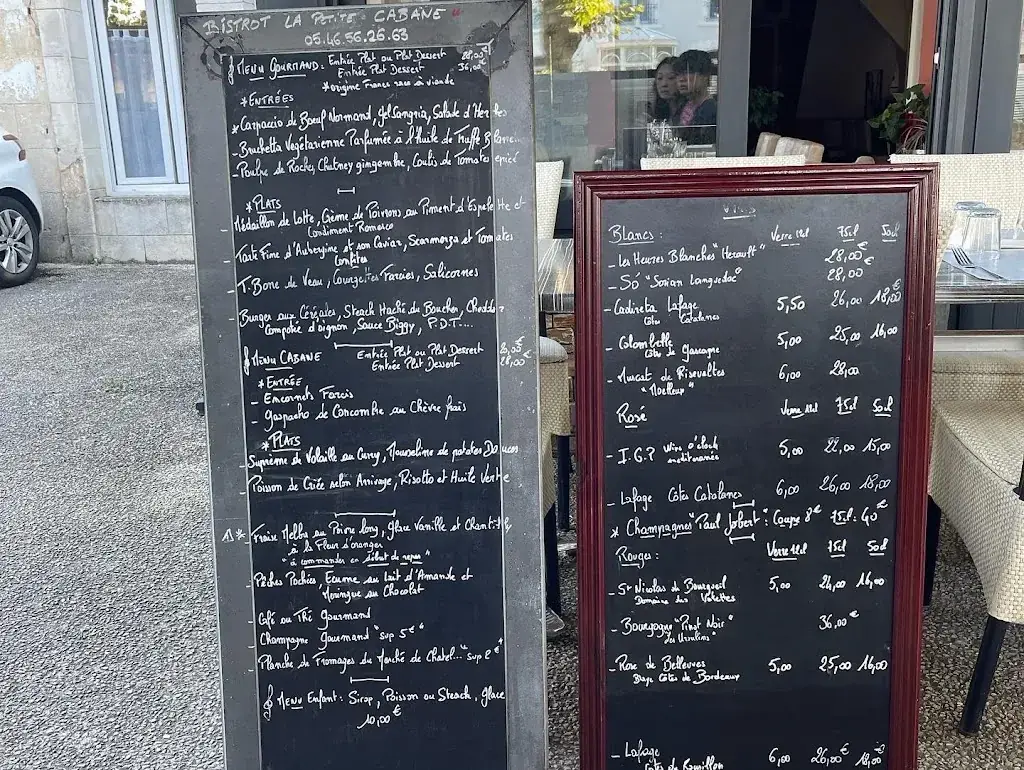 BISTROT LA PETITE CABANE
05.46.56.26.63
MENU GOURMAND: Entrée Plat ou Plat Dessert 28,00€
Entrée Plat Dessert 36,00€
*origine France race à viande
*ENTRÉES
*Carpaccio de Boeuf Normand, gel Sangria, Salade d'Herbes
-Bruchetta Végétarienne Parfumée à l'Huile de Truffe Blanche
-Poulpe de Roches, Chutney gingembre, Coulis de Tomates épicé
*PLATS
- Médaillon de Lotte, Crème de Poivrons au Piment d'Espelette et
Condiment Romesco
- Tarte Fine d'Aubergine et son Caviar, Scarmorza et Tomates
Confites
- T.Bone de Veau, Courgettes Farcies, Salicornes
- Burger aux Céréales, Steack Haché du Boucher, Cheddar
Compotée d'oignon, Sauce Biggy, P.D.T....
MENU CABANE Entrée Plat ou Plat Dessert 20,00€
Entrée Plat Dessert 28,00€
*ENTRÉE
- Encornets Farcis
- gaspacho de Concombre au Chèvre frais
*PLATS
-Suprême de Volaille au Curry, Mousseline de patates Douces
-Poisson de Criée selon Arrivage, Risotto et Huile Verte
1*- Fraise Melba au Poivre long, glace Vanille et Chantilly
à la Fleur d'oranger
"à commander en début de repas"
- Pêches Pochées, Ecume au Lait d'Amande et
Meringue au Chocolat
- Café ou Thé gourmand
- Champagne gourmand "sup 5€"
- Planche de Fromages du Marché de Chatel... "sup €"
MENU Enfant: Sirop, Poisson ou Steack, glace
10,00€
VINS
Blancs: Verre 12cl 75cl 50cl
- Les Heures Blanches "Herault" 28,00€
- Só "Sorian Languedoc" 28,00
- Cadireta Lafage 5,50 26,00 18,00€
Côtes Catalanes
- Colombelle 5,00 25,00 16,00
Côtes de Gascogne
- Muscat de Rivesaltes 6,00 28,00
"Moelleux"
Rosé Verre 12cl 75cl 50cl
- I.G.P Wine o'clock 5,00 22,00 15,00
méditerranée
- Lafage Côtes Catalanes 6,00 26,00 18,00
* Champagnes "Paul Jobert": Coupe 8€ 75cl: 40€
Rouges: Verre 12cl 75cl 50cl
- St Nicolas de Bourgueil 5,00 24,00 16,00
Domaine des Valettes
- Bourgogne "Pinot Noir" 36,00€
des Ursulines"
- Rose de Bellevues 5,00 25,00 16,00
Blaye Côtes de Bordeaux
- Lafage 6,00 26,00€ 18,00
Côtes de Roussillon